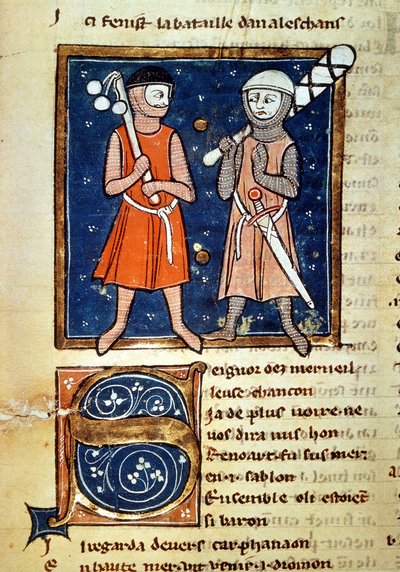 ci fenist la bataille dan aleschans
Seignor oez merueil
leuse chancon
Ja de plus uoire ne
uos dira nus hon
Renoart fu sus mer
en .i. sablon
Ensemble o li estoient
si baron
Il regarda deuers carphanaon
En haute mer uit uenir .i. dromon